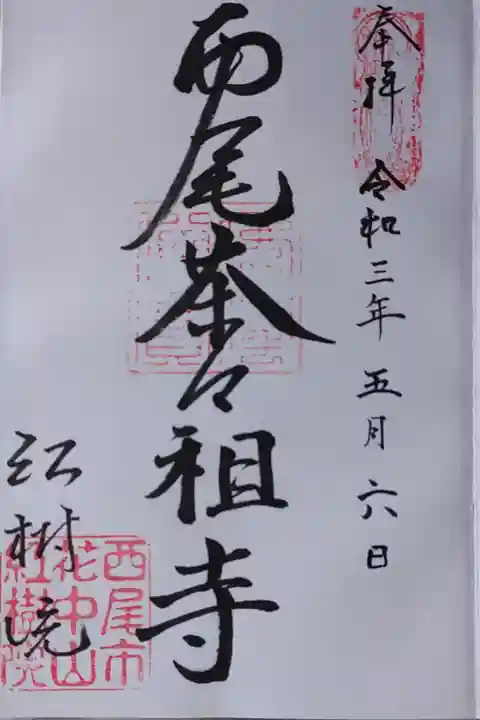 奉拝 令和三年 五月六日
西尾茶々祖寺
紅樹院
西尾市
花中山
紅樹院